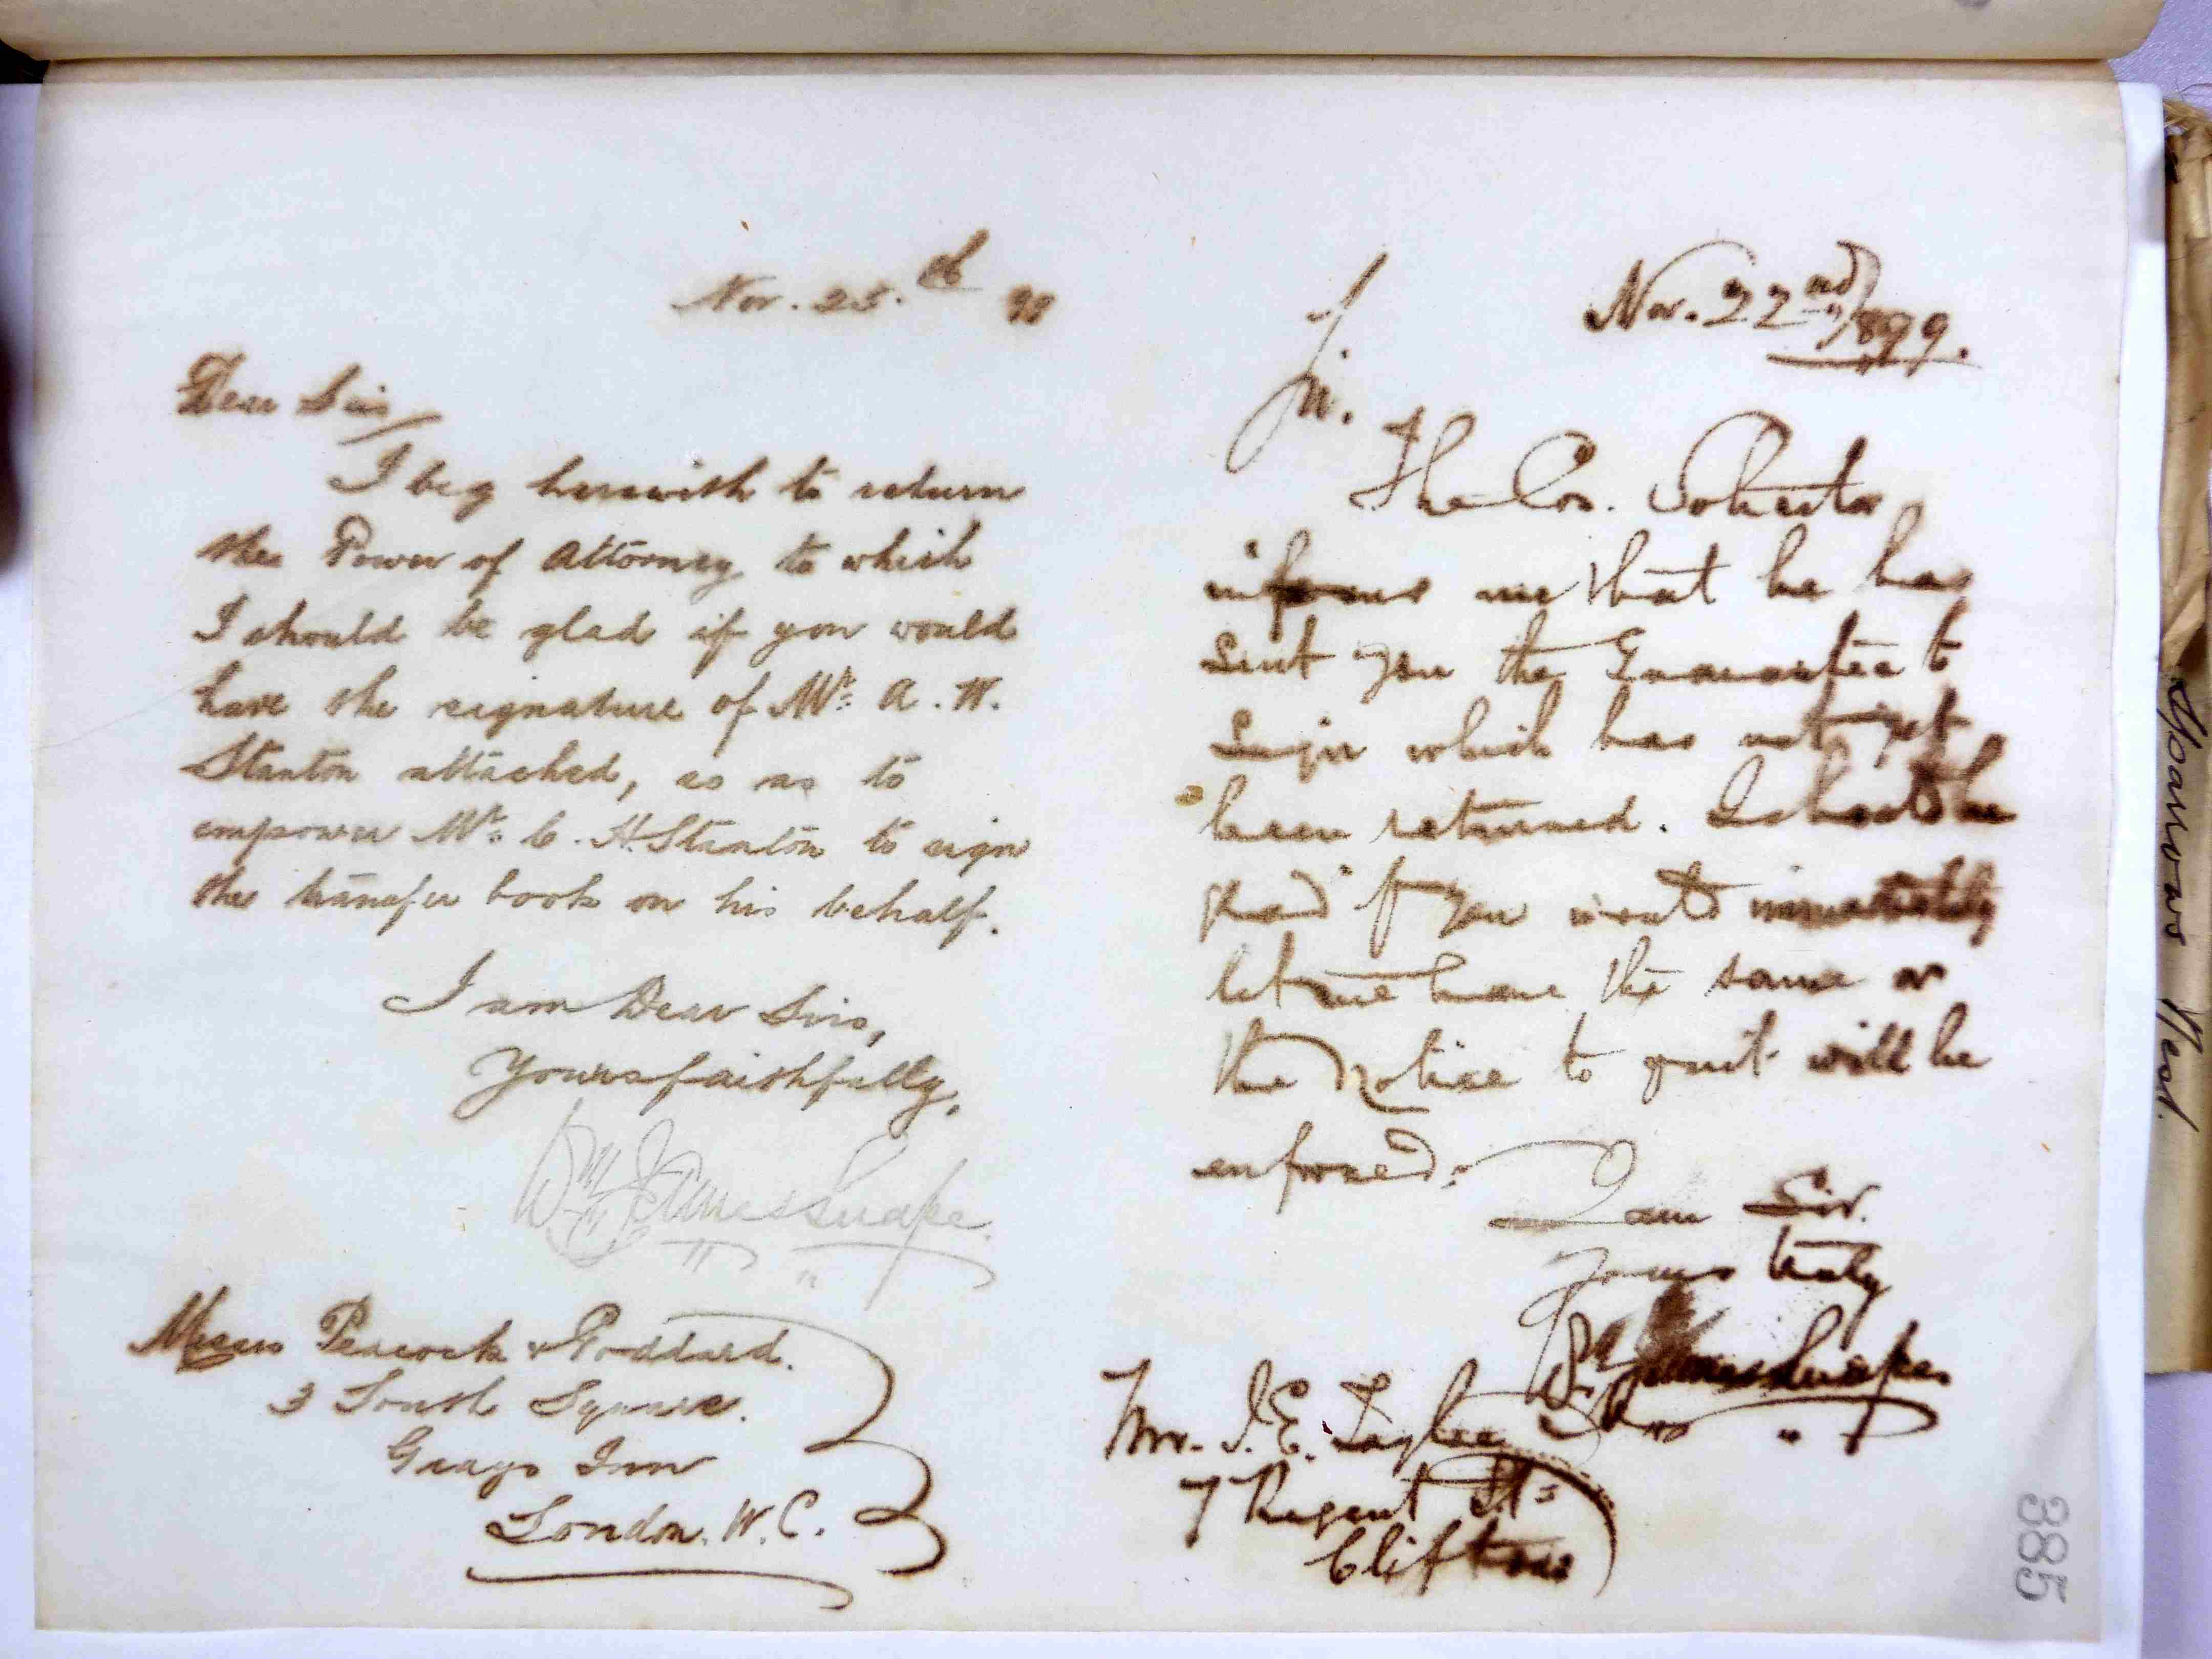 Nov. 25.th 99
Dear Sirs
I beg herewith to return
the Power of Attorney, to which
I should be glad if you would
have the signature of Mr. A. W.
Stanton attached, so as to
empower Mr. C. H. Stanton to sign
the transfer book on his behalf.
I am Dear Sirs,
Yours faithfully,
Wm James Snape
Messrs Peacock & Goddard.
3 South Square.
Grays Inn
London. W.C.
Nov. 22nd 1899.
Sir.
The Cos. Solicitor
informs me that he has
sent you the Guarantee to
sign which has not yet
been returned. I should be
glad if you would immediately
let me have the same or
the Notice to quit will be
enforced.
I am Sir.
Yours truly
Wm James Snape
Mr. J. E.
7 Regent St.
Clifton
385
Neat.